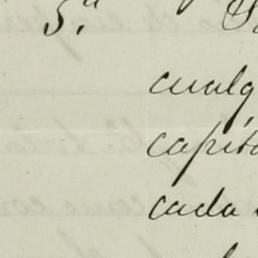 5.a
cualq
capíta
cada